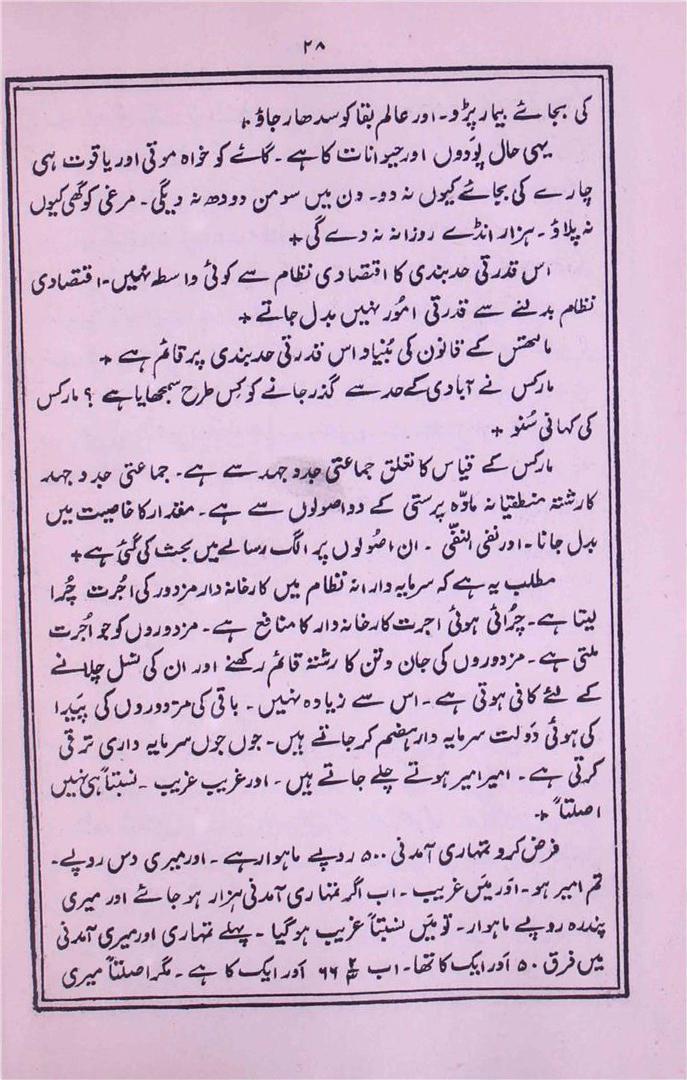 ۲۸
کی بجائے بیمار پڑو۔ اور عالم بقا کو سدھار جاؤ +
یہی حال پَودوں اور حیوانات کا ہے۔ گائے کو خواہ موتی اور یاقوت ہی
چارے کی بجائے کیوں نہ دو۔ دن میں سو من دودھ نہ دیگی۔ مرغی کو گھی کیوں
نہ پلاؤ۔ ہزار انڈے روزانہ نہ دے گی +
اس قدرتی حد بندی کا اقتصادی نظام سے کوئی واسطہ نہیں۔ اقتصادی
نظام بدلنے سے قدرتی امُور نہیں بدل جاتے +
مالتھس کے قانون کی بُنیاد اس قدرتی حد بندی پر قائم ہے +
مارکس نے آبادی کے حد سے گذر جانے کو کِس طرح سمجھایا ہے ؟ مارکس
کی کہانی سُنو +
مارکس کے قیاس کا تعلق جماعتی جدوجہد سے ہے۔ جماعتی جدوجہد
کا رشتہ منطقیانہ مادّہ پرستی کے دو اصولوں سے ہے۔ مقدار کا خاصیت میں
بدل جانا۔ اور نفی النفّی ۔ ان اصُولوں پر الگ رسالے میں بحث کی گئی ہے +
مطلب یہ ہے کہ سرمایہ دارانہ نظام میں کارخانہ دار مزدور کی اُجرت چُرا
لیتا ہے۔ چرُائی ہوئی اجرت کارخانہ دار کا منافع ہے۔ مزدوروں کو جو اُجرت
ملتی ہے۔ مزدوروں کی جان و تن کا رشتہ قائم رکھنے اور ان کی نسل چلانے
کے لئے کافی ہوتی ہے۔ اس سے زیادہ نہیں۔ باقی کی مزدوروں کی پَیدا
کی ہوئی دَولت سرمایہ دار ہضم کر جاتے ہیں۔ جوں جوں سرمایہ داری ترقی
کرتی ہے۔ امیر امیر ہوتے چلے جاتے ہیں۔ اور غریب غریب ۔ نسبتاً ہی نہیں
اصلتاً +
فرض کرو تمہاری آمدنی ۵۰۰ روپے ماہوار ہے۔ اور میری دس روپے۔
تم امیر ہو۔ اور مَیں غریب ۔ اب اگر تمہاری آمدنی ہزار ہو جائے اور میری
پندرہ روپے ماہوار۔ تو مَیں نسبتاً غریب ہو گیا ۔ پہلے تمہاری اور میری آمدنی
میں فرق ۵۰ اَور ایک کا تھا۔ اب ۶۶ ۲/۳ اَور ایک کا ہے ۔ مگر اصلتاً میری